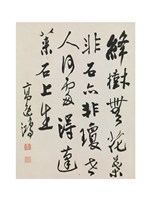 絳樹無花葉
非石亦非瓊世
人何處得蓬
萊石上生
高逸鴻